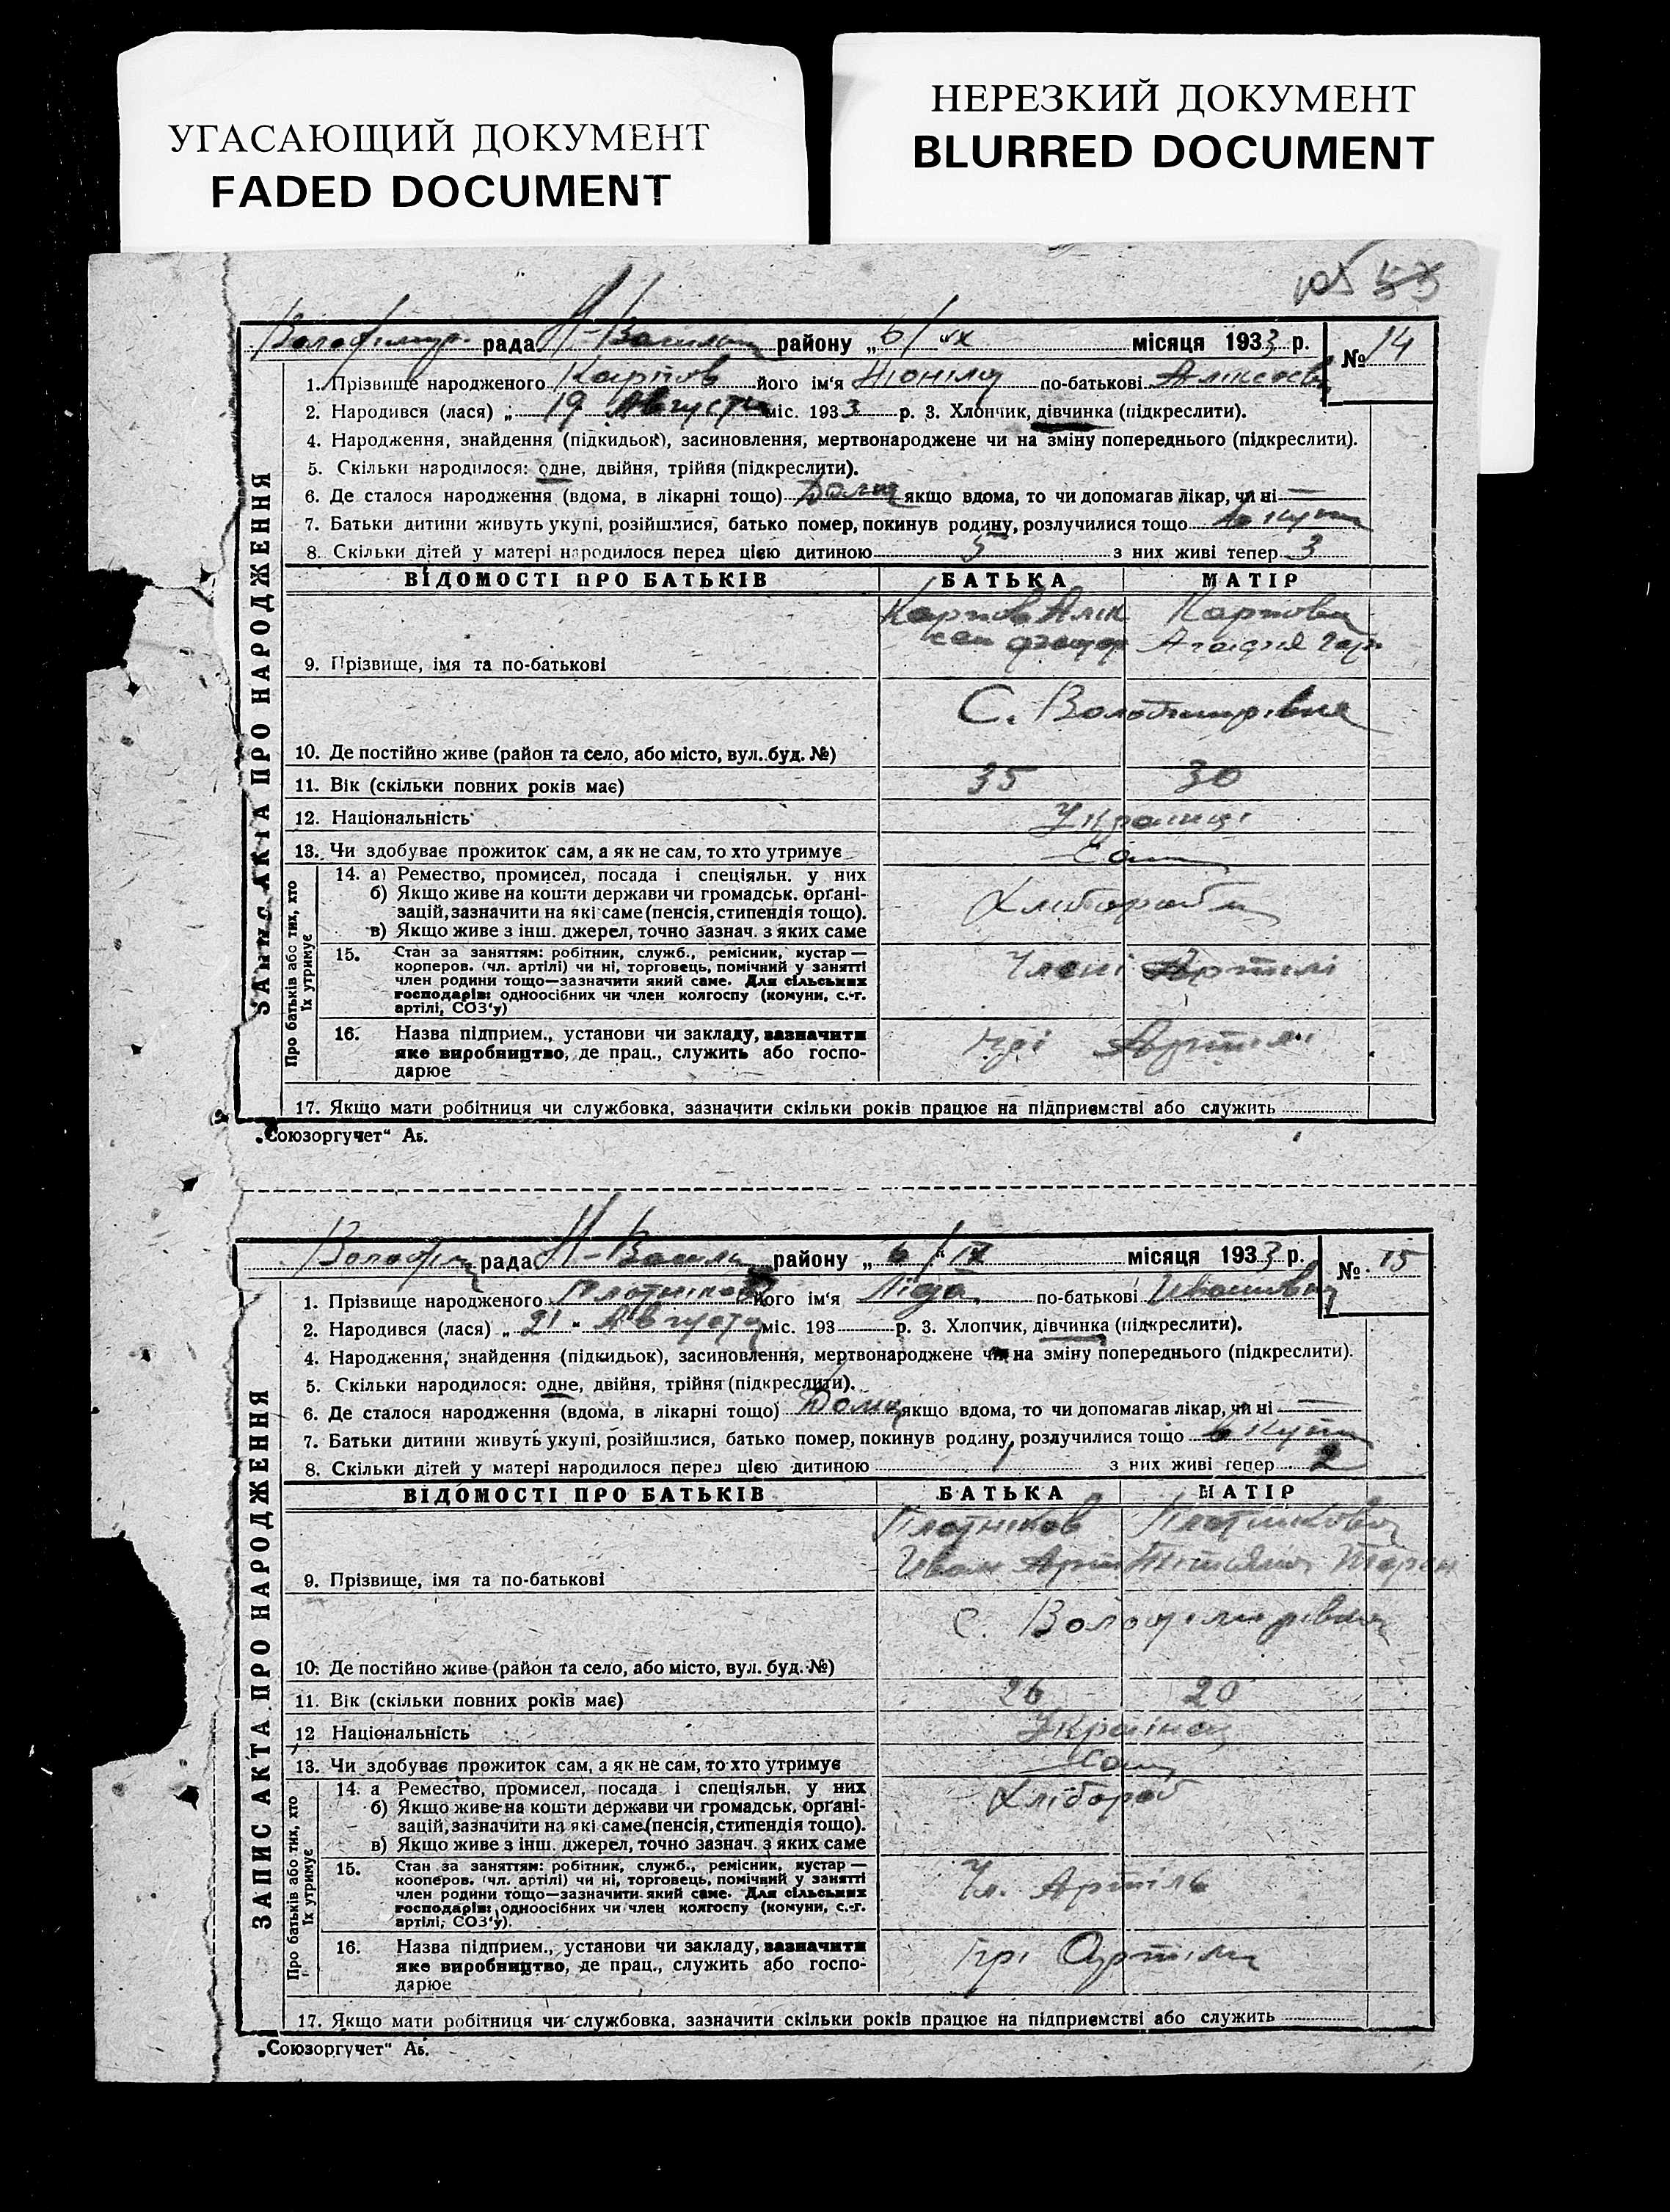 УГАСАЮЩИЙ ДОКУМЕНТ
FADED DOCUMENT
НЕРЕЗКИЙ ДОКУМЕНТ
BLURRED DOCUMENT
105 53
Володимир. рада Н-Васил району „6/ IX місяця 1933 р. № 14
1. Прізвище народженого Карпов його ім'яНіоніла по-батькові Аліксєєвн
2. Народився (лася) „ 19 Августа міс. 1933 р. 3. Хлопчик, дівчинка (підкреслити).
4. Народження, знайдення (підкидьок), засиновлення, мертвонароджене чи на зміну попереднього (підкреслити).
5. Скільки народилося: одне, двійня, трійня (підкреслити).
6. Де сталося народження (вдома, в лікарні тощо) Дома якщо вдома, то чи допомагав лікар, чи ні —
7. Батьки дитини живуть укупі, розійшлися, батько помер, покинув родину, розлучилися тощо в купі
8. Скільки дітей у матері народилося перед цією дитиною 5 з них живі тепер 3
ВІДОМОСТІ ПРО БАТЬКІВ БАТЬКА МАТІР
Карпов Алік Карпова
сей Агафія
9. Прізвище, імя та по-батькові
С. Володимирівка
10. Де постійно живе (район та село, або місто, вул. буд. №)
11. Вік (скільки повних років має) 35 30
12. Національність Українці
13. Чи здобуває прожиток сам, а як не сам, то хто утримує Сам
14. а) Ремество, промисел, посада і спеціяльн. у них
б) Якщо живе на кошти держави чи громадськ. органі-
зацій, зазначити на які саме (пенсія, стипендія тощо). Хлібороби
в) Якщо живе з інш. джерел, точно зазнач. з яких саме
15. Стан за заняттям: робітник, служб., ремісник, кустар —
кооперов. (чл. артілі) чи ні, торговець, помічний у занятті
член родини тощо—зазначити який саме. Для сільських Члені Артілі
господарів: одноосібних чи член колгоспу (комуни, с.-г.
артілі, СОЗ'у)
16. Назва підприєм., установи чи закладу, зазначити
яке виробництво, де прац., служить або госпо- при Артілі
дарює
17. Якщо мати робітниця чи службовка, зазначити скільки років працює на підприємстві або служить
ЗАПИС АКТА ПРО НАРОДЖЕННЯ
Про батьків або тих, хто
їх утримує
„Союзоргучет“ Аб.
Володим рада Н-Васил району „ 6 / IX місяця 1933 р. № 15
1. Прізвище народженого Плотніков його ім'я Ліда по-батькові Ивановн
2. Народився (лася) „ 21 " Августа міс. 193 р. 3. Хлопчик, дівчинка (підкреслити).
4. Народження, знайдення (підкидьок), засиновлення, мертвонароджене чи на зміну попереднього (підкреслити).
5. Скільки народилося: одне, двійня, трійня (підкреслити).
6. Де сталося народження (вдома, в лікарні тощо) Дома якщо вдома, то чи допомагав лікар, чи ні —
7. Батьки дитини живуть укупі, розійшлися, батько помер, покинув родину, розлучилися тощо в купі
8. Скільки дітей у матері народилося перед цією дитиною 1 з них живі тепер 2
ВІДОМОСТІ ПРО БАТЬКІВ БАТЬКА МАТІР
Плотніков Плотнікова
Иван Арт
9. Прізвище, імя та по-батькові
С. Володимирівка
10. Де постійно живе (район та село, або місто, вул. буд. №)
11. Вік (скільки повних років має) 26 20
12 Національність Українец
13. Чи здобуває прожиток сам, а як не сам, то хто утримує Сам
14. а Ремество, промисел, посада і спеціяльн. у них Хлібороб
б) Якщо живе на кошти держави чи громадськ. органі-
зацій, зазначити на які саме (пенсія, стипендія тощо).
в) Якщо живе з інш. джерел, точно зазнач. з яких саме
15. Стан за заняттям: робітник, служб., ремісник, кустар —
кооперов. (чл. артілі) чи ні, торговець, помічний у занятті Чл. Артіль
член родини тощо—зазначити який саме. Для сільських
господарів: одноосібних чи член колгоспу (комуни, с.-г.
артілі, СОЗ'у).
16. Назва підприєм., установи чи закладу, зазначити
яке виробництво, де прац., служить або госпо- при Артілі
дарює
17. Якщо мати робітниця чи службовка, зазначити скільки років працює на підприємстві або служить
ЗАПИС АКТА ПРО НАРОДЖЕННЯ
Про батьків або тих, хто
їх утримує
„Союзоргучет“ Аб.